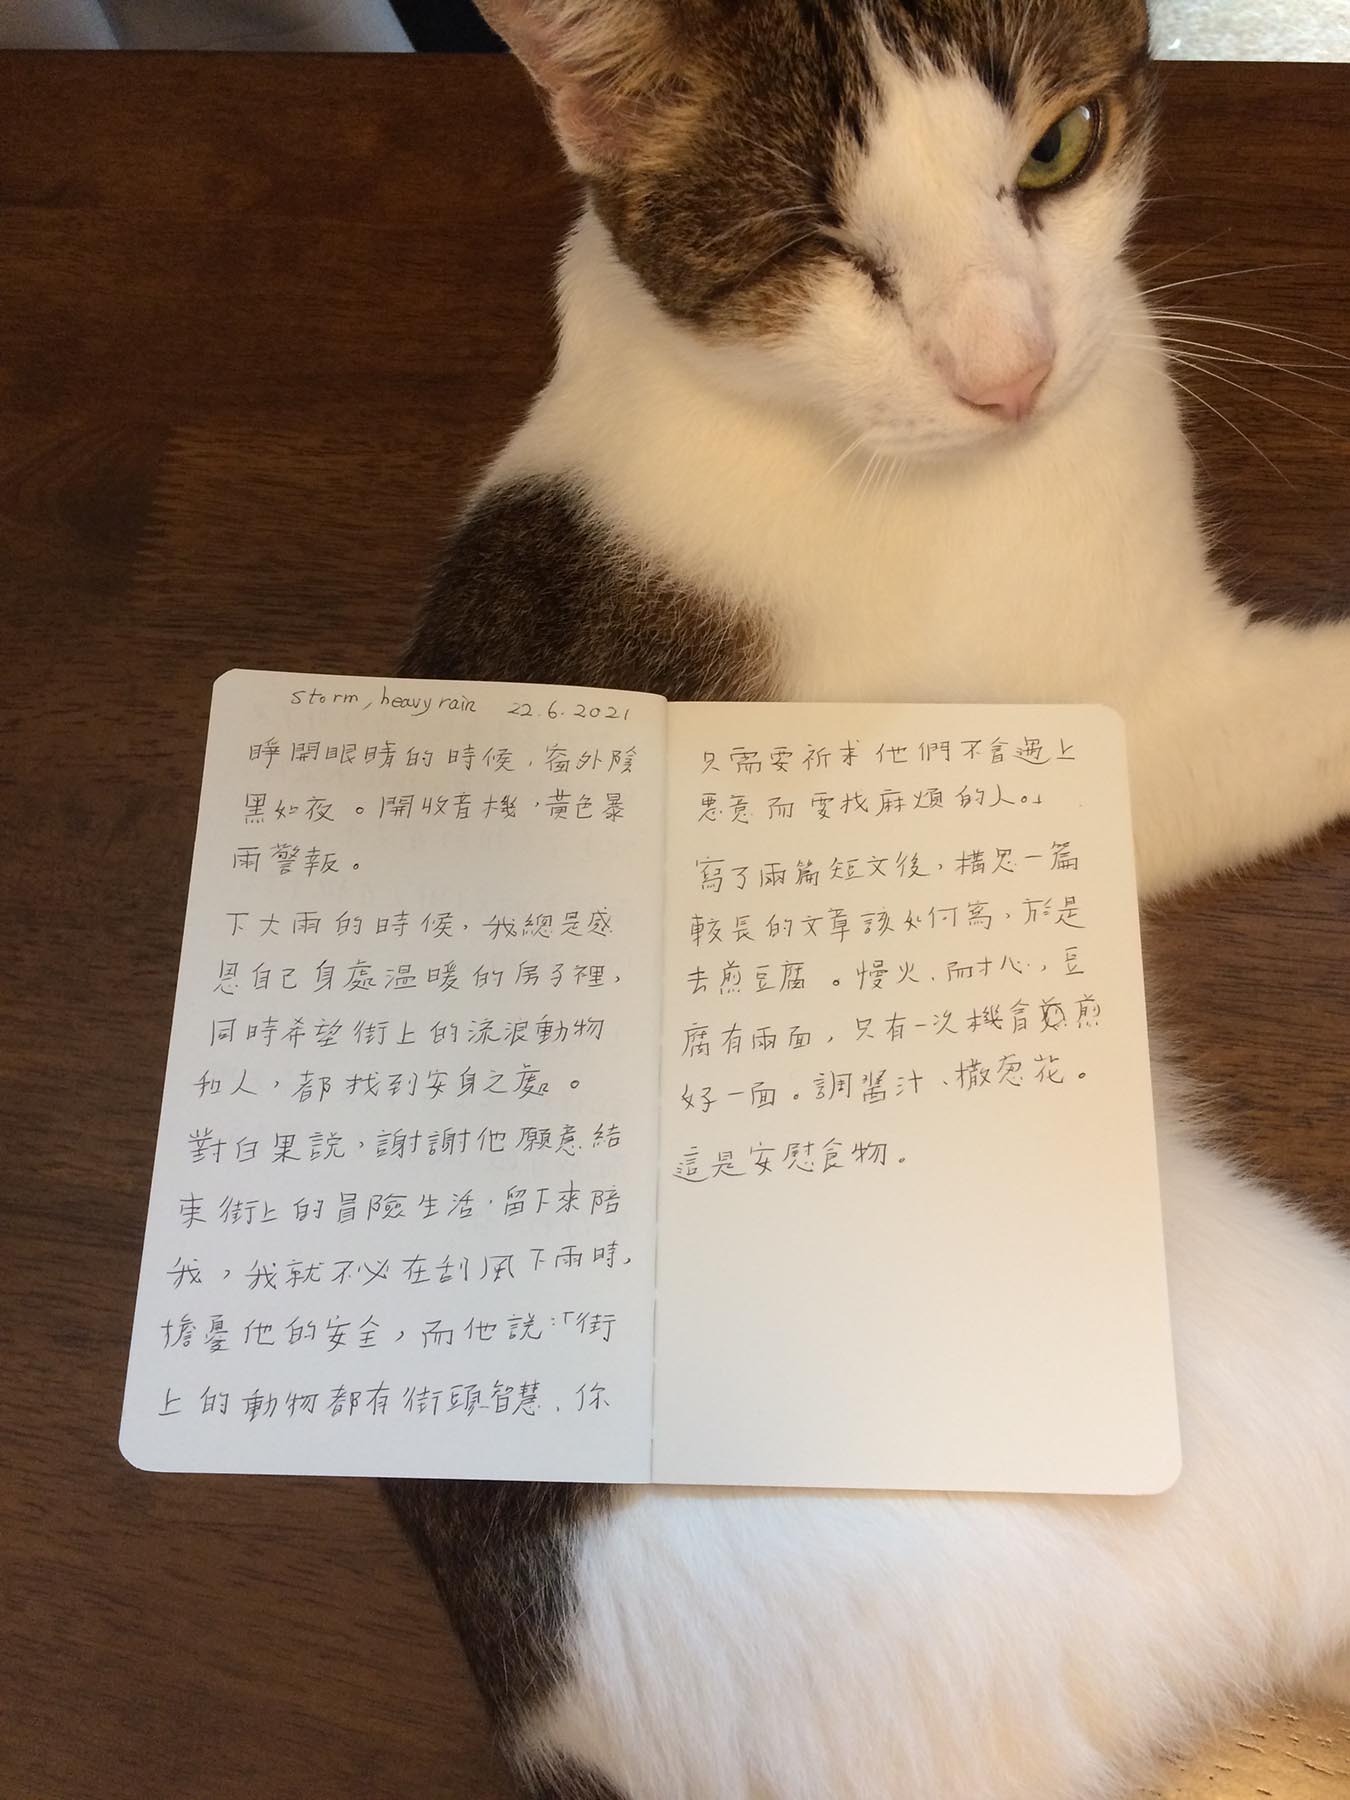 storm, heavy rain 22.6.2021
睜開眼睛的時候，窗外陰
黑如夜。開收音機，黃色暴
雨警報。
下大雨的時候，我總是感
恩自己身處溫暖的房子裡，
同時希望街上的流浪動物
和人，都找到安身之處。
對白果說，謝謝他願意結
束街上的冒險生活，留下來陪
我，我就不必在刮風下雨時，
擔憂他的安全，而他說：「街
上的動物都有街頭智慧、你
只需要祈求他們不會遇上
惡意而要找麻煩的人。」
寫了兩篇短文後，構思一篇
較長的文章該如何寫，於是
去煎豆腐。慢火、耐心，豆
腐有兩面，只有一次機會煎
好一面。調醬汁、撒葱花。
這是安慰食物。